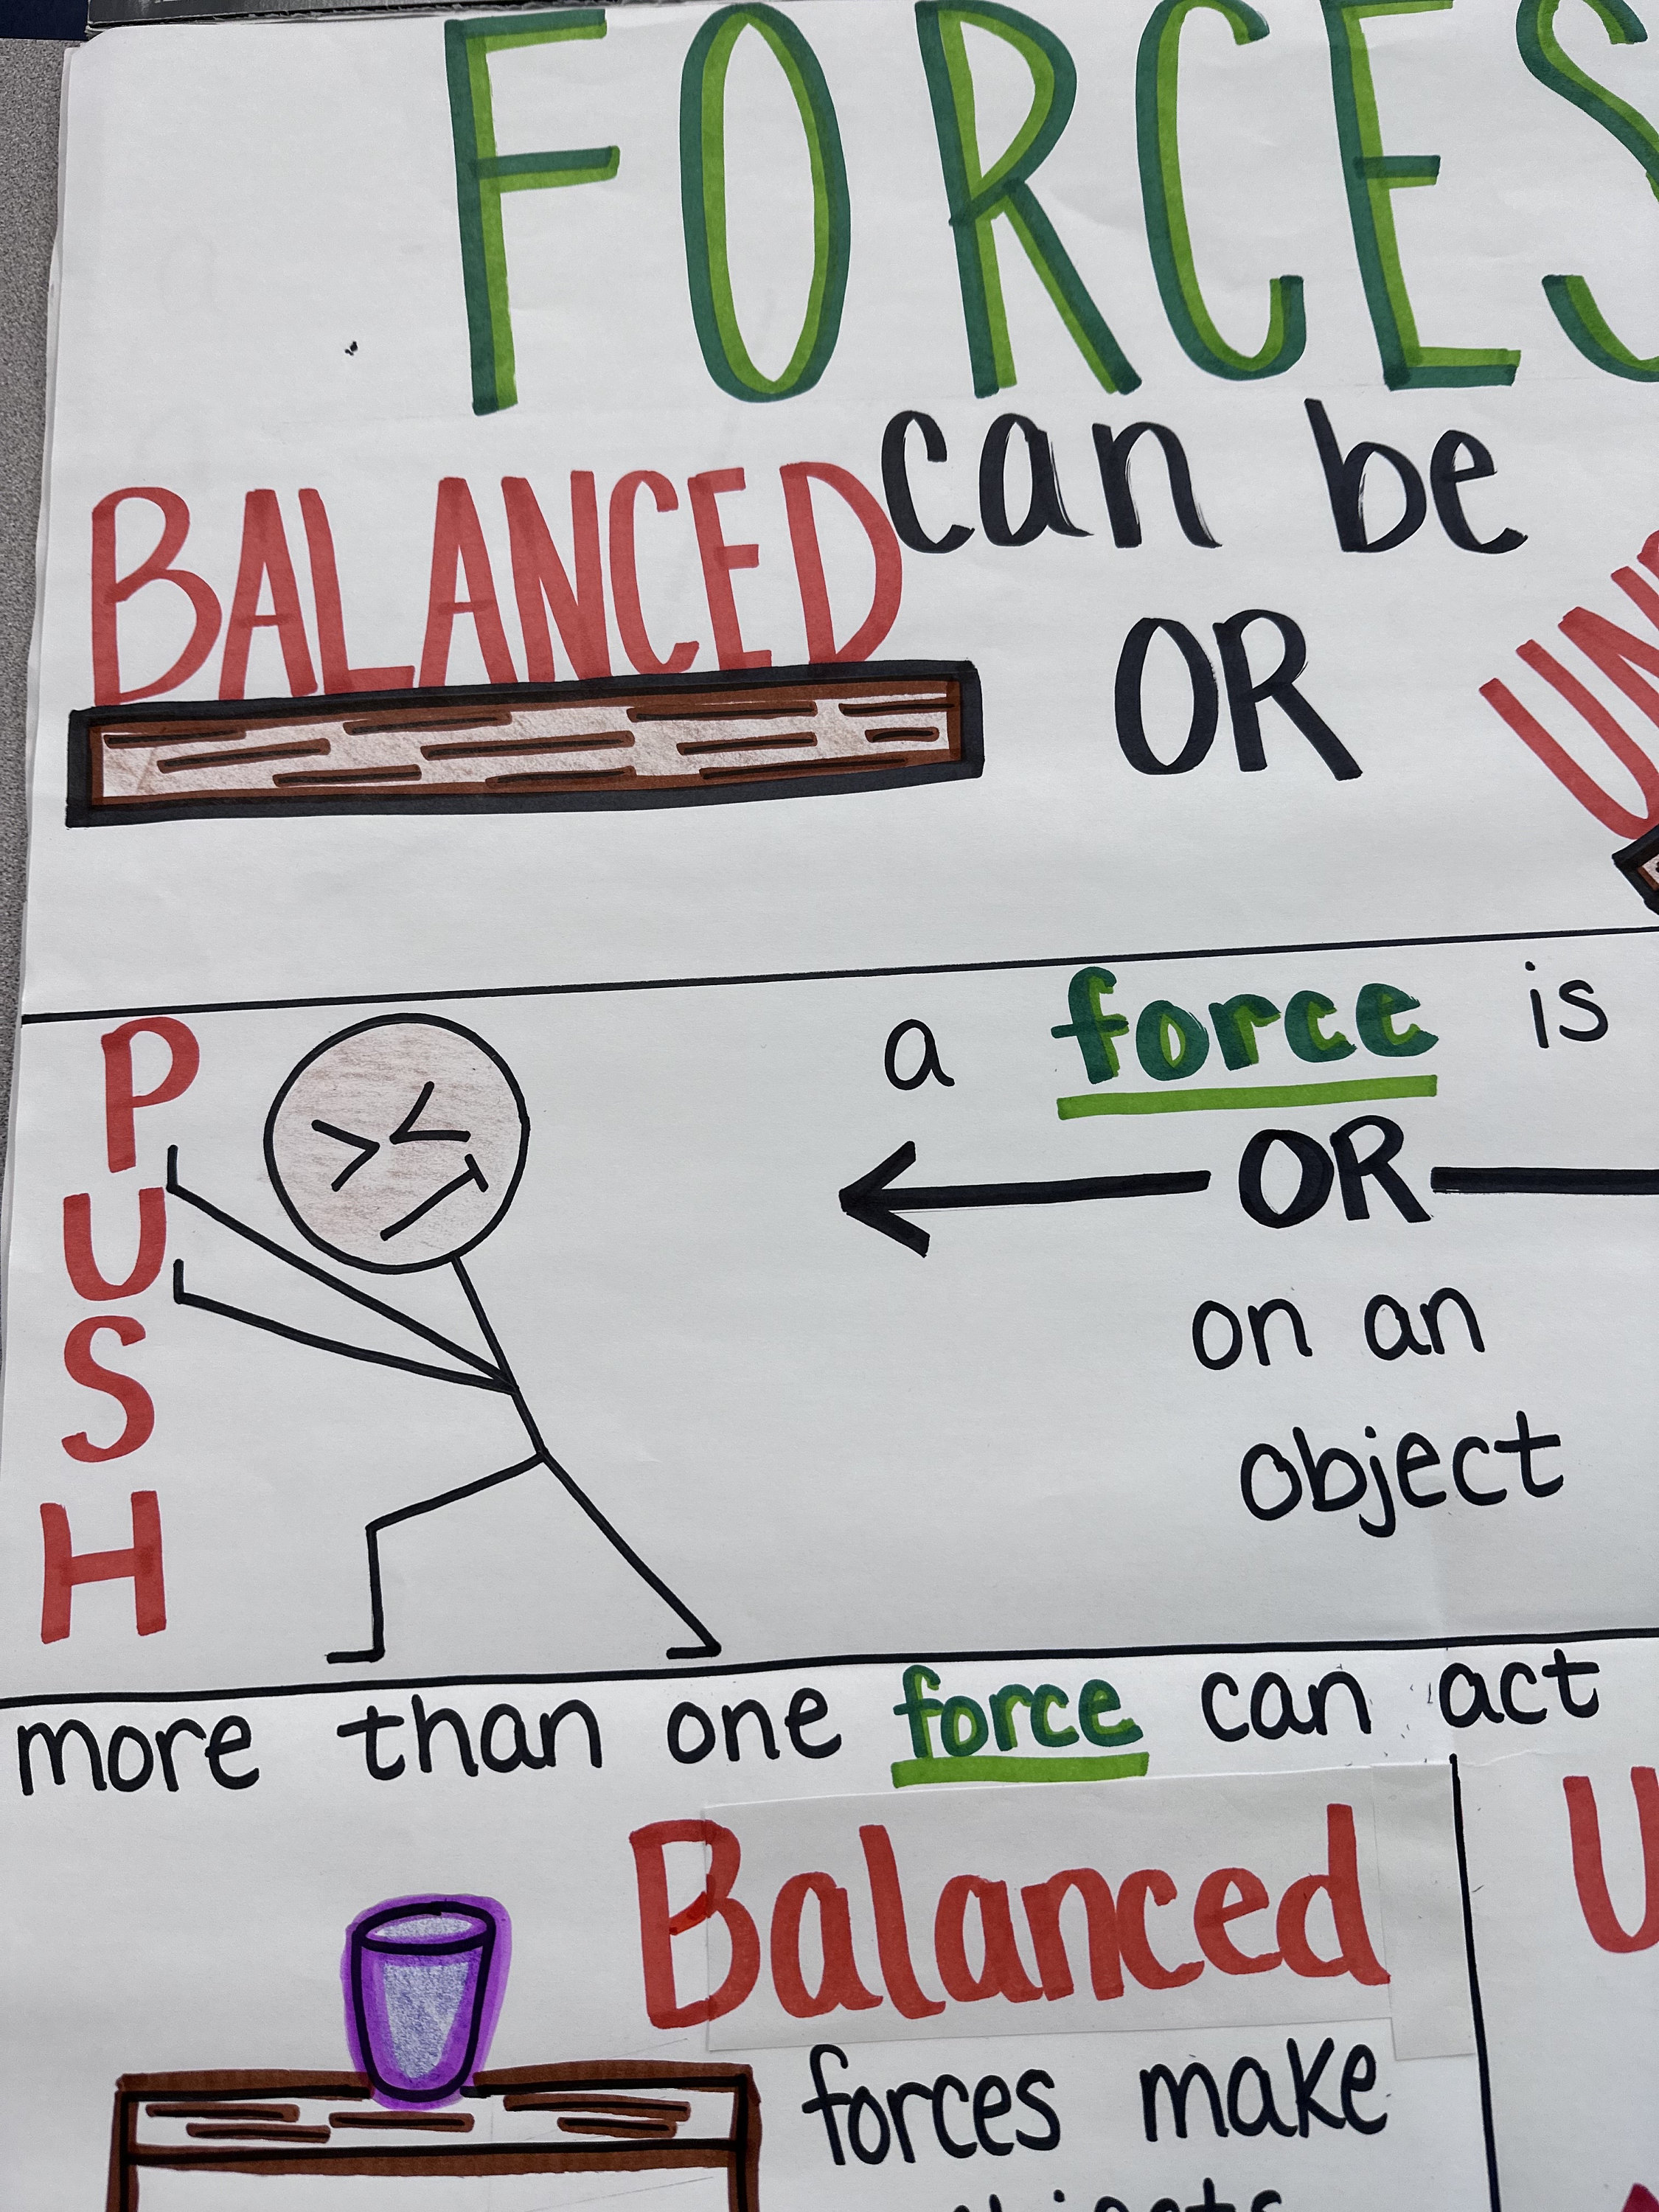 FORCES
can be
BALANCED
OR
UN
a force is
PUSH
OR
on an
object
more than one force can act
Balanced
U
forces make